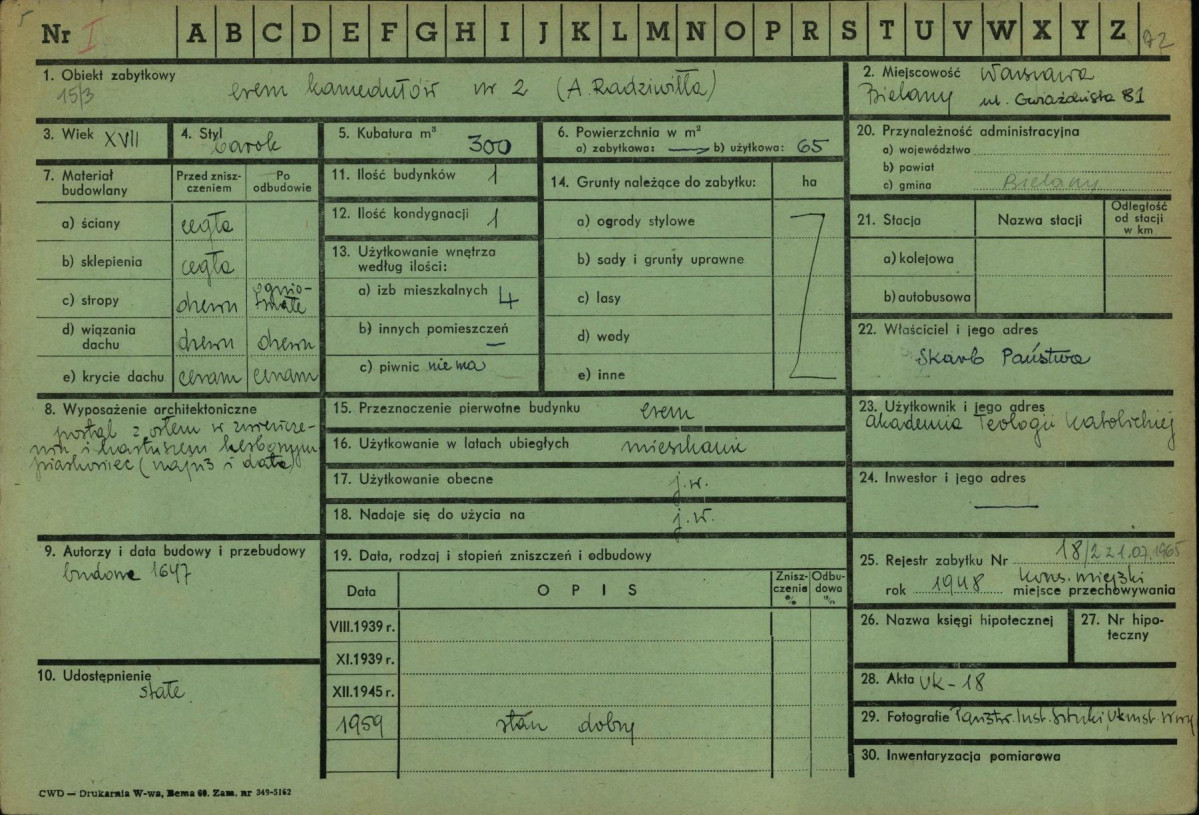 5
Nr I A B C D E F G H I J K L M N O P R S T U V W X Y Z 92
1. Obiekt zabytkowy
15/3
erem kamedułów nr 2 (A. Radziwiłła)
2. Miejscowość Warszawa
Bielany ul. Gwiaździsta 81
3. Wiek XVII
4. Styl
barok
5. Kubatura m³
300
6. Powierzchnia w m²
a) zabytkowa: b) użytkowa: 65
7. Materiał
budowlany
Przed znisz-
czeniem
Po
odbudowie
a) ściany cegła
b) sklepienia cegła
c) stropy drewn ognio-
trwałe
d) wiązania
dachu drewn drewn
e) krycie dachu ceram ceram
11. Ilość budynków 1
12. Ilość kondygnacji 1
13. Użytkowanie wnętrza
według ilości:
a) izb mieszkalnych 4
b) innych pomieszczeń –
c) piwnic nie ma
14. Grunty należące do zabytku: ha
a) ogrody stylowe
b) sady i grunty uprawne
c) lasy
d) wody
e) inne
20. Przynależność administracyjna
a) województwo
b) powiat
c) gmina Bielany
21. Stacja
Nazwa stacji
Odległość
od stacji
w km
a) kolejowa
b) autobusowa
22. Właściciel i jego adres
Skarb Państwa
8. Wyposażenie architektoniczne
portal z orłem w zwieńcze-
niu i kartuszem herbowym
15. Przeznaczenie pierwotne budynku erem
16. Użytkowanie w latach ubiegłych mieszkanie
17. Użytkowanie obecne j.w.
18. Nadaje się do użycia na j.w.
23. Użytkownik i jego adres
Akademia Teologii Katolickiej
24. Inwestor i jego adres
—
9. Autorzy i data budowy i przebudowy
budowa 1647
10. Udostępnienie
stałe
19. Data, rodzaj i stopień zniszczeń i odbudowy
Data
OPIS
Znisz-
czenie
%
Odbu-
dowa
%
VIII.1939 r.
XI.1939 r.
XII.1945 r.
1959 stan dobry
25. Rejestr zabytku Nr 18/2 z 1.07.1965
rok 1948 Kons. miejski
miejsce przechowywania
26. Nazwa księgi hipotecznej
27. Nr hipo-
teczny
28. Akta UK-18
29. Fotografie Państw. Inst. Sztuki,
30. Inwentaryzacja pomiarowa
CWD — Drukarnia W-wa, Bema 60. Zam. nr 349-5162